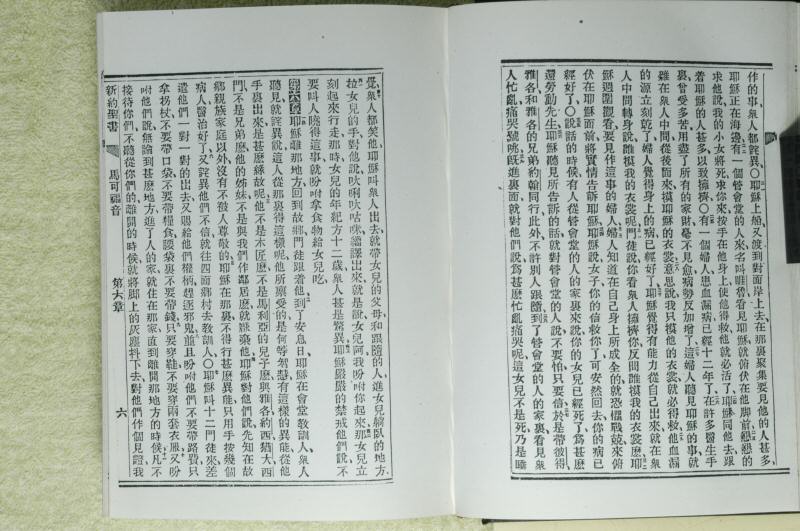 作的事衆人都詫異○耶穌上船又渡到對面岸上去在那裏聚集要見他的人甚多
耶穌正在海邊有一個管會堂的人來名叫睚魯看見耶穌就俯伏在他脚前懇懇的
求他說我的小女將死求你來按手在他身上使他得救他就必活了耶穌同他去跟
着耶穌的人甚多以致擁擠○有一個婦人患血漏病已經十二年了在許多醫生手
裏曾受多苦用盡了所有的家財毫不見愈病勢反加增了這婦人聽見耶穌的事就
雜在衆人中間從後面來摸耶穌的衣裳意思說我只摸他的衣裳就必得救他血漏
的源立刻乾了婦人覺得身上的病已經好了耶穌覺得有能力從自己出來就在衆
人中間轉身說誰摸我的衣裳呢門徒說你看衆人擁擠你反問誰摸我的衣裳麼耶
穌週圍觀看要見作這事的婦人婦人知道在自己身上所成全的就恐懼戰兢來俯
伏在耶穌面前將實情告訴耶穌耶穌說女子你的信救你了可安然回去你的病已
經好了○說話的時候有人從管會堂的人的家裏來說你的女兒已經死了爲甚麼
還勞動先生耶穌聽見所告訴的話就對管會堂的人說不要怕只要信於是帶彼得
雅各和雅各的兄弟約翰同行此外不許別人跟隨到了管會堂的人的家裏看見衆
人忙亂痛哭號咷旣進裏面就對他們說爲甚麼忙亂痛哭呢這女兒不是死乃是睡
覺衆人都笑他耶穌叫衆人出去就帶女兒的父母和跟隨的人進女兒躺臥的地方
拉女兒的手對他說吠唎吠咕咪繙譯出來就是說女兒阿我吩咐你起來那女兒立
刻起來行走那時女兒的年紀方十二歲衆人甚是驚異耶穌嚴嚴的禁戒他們說不
要叫人曉得這事就吩咐拿食物給女兒吃
第六章耶穌離那地方回到故鄉門徒跟着他到了安息日耶穌在會堂敎訓人衆人
聽見就詫異說這人從那裏得這樣呢他所稟受的是何等智慧有這樣的異能從他
手裏出來是甚麼緣故呢他不是木匠麼不是馬利亞的兒子麼與雅各約西猶大西
門不是兄弟麼他的姊妹不是與我們作鄰居麼就厭棄他耶穌對他們說先知在故
鄉親族家庭以外沒有不被人尊敬的耶穌在那裏不得行甚麼異能只用手按幾個
病人醫治好了又詫異他們不信就往四面鄉村去敎訓人○耶穌叫十二門徒來差
遣他們一對一對的出去又賜給他們權柄趕逐邪鬼並且吩咐他們不要帶路費只
拿拐杖不要帶口袋不要帶糧食腰袋裏不要帶錢只要穿鞋不要穿兩套衣服又吩
咐他們說無論到甚麼地方進了人的家就住在那家直到離開那地方的時候凡不
接待你們不聽從你們的離開的時候就將脚上的灰塵抖下去對他們作個見證我
新約聖書
馬可福音
第六章
六